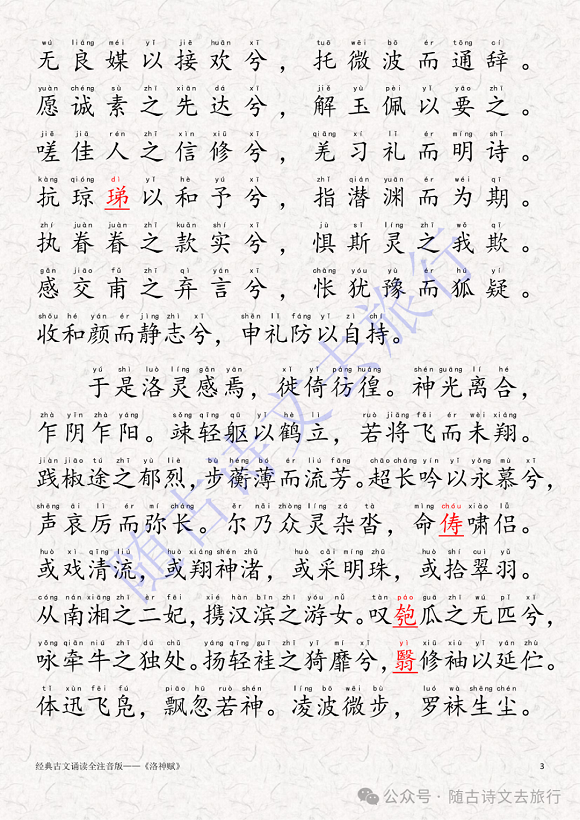 wú liáng méi yǐ jiē huān xī tuō wēi bō ér tōng cí
无良媒以接欢兮，托微波而通辞。
yuàn chéng sù zhī xiān dá xī jiě yù pèi yǐ yāo zhī
愿诚素之先达兮，解玉佩以要之。
jiē jiā rén zhī xìn xiū xī qiāng xí lǐ ér míng shī
嗟佳人之信修兮，羌习礼而明诗。
kàng qióng dì yǐ hè yú xī zhǐ qián yuān ér wéi qī
抗琼珶以和予兮，指潜渊而为期。
zhí juàn juàn zhī kuǎn shí xī jù sī líng zhī wǒ qī
执眷眷之款实兮，惧斯灵之我欺。
gǎn jiāo fǔ zhī qì yán xī chàng yóu yù ér hú yí
感交甫之弃言兮，怅犹豫而狐疑。
shōu hé yán ér jìng zhì xī shēn lǐ fáng yǐ zì chí
收和颜而静志兮，申礼防以自持。
yú shì luò líng gǎn yān xǐ yǐ páng huáng shén guāng lí hé
于是洛灵感焉，徙倚彷徨。神光离合，
zhà yīn zhà yáng sǒng qīng qū yǐ hè lì ruò jiāng fēi ér wèi xiáng
乍阴乍阳。竦轻躯以鹤立，若将飞而未翔。
jiàn jiāo tú zhī yù liè bù héng bó ér liú fāng chāo cháng yín yǐ yǒng mù xī
践椒途之郁烈，步蘅薄而流芳。超长吟以永慕兮，
shēng āi lì ér mí cháng ěr nǎi zhòng líng zá tà mìng chóu xiào lǚ
声哀厉而弥长。尔乃众灵杂沓，命俦啸侣。
huò xì qīng liú huò xiáng shén zhǔ huò cǎi míng zhū huò shí cuì yǔ
或戏清流，或翔神渚，或采明珠，或拾翠羽。
cóng nán xiāng zhī èr fēi xié hàn bīn zhī yóu nǚ tàn páo guā zhī wú pǐ xī
从南湘之二妃，携汉滨之游女。叹匏瓜之无匹兮，
yǒng qiān niú zhī dú chǔ yáng qīng guī zhī yī mí xī yì xiū xiù yǐ yán zhù
咏牵牛之独处。扬轻袿之猗靡兮，翳修袖以延伫。
tǐ xùn fēi fú piāo hū ruò shén líng bō wēi bù luó wà shēng chén
体迅飞凫，飘忽若神。凌波微步，罗袜生尘。
随古诗文去旅行
经典古文诵读全注音版——《洛神赋》 3
公众号·随古诗文去旅行